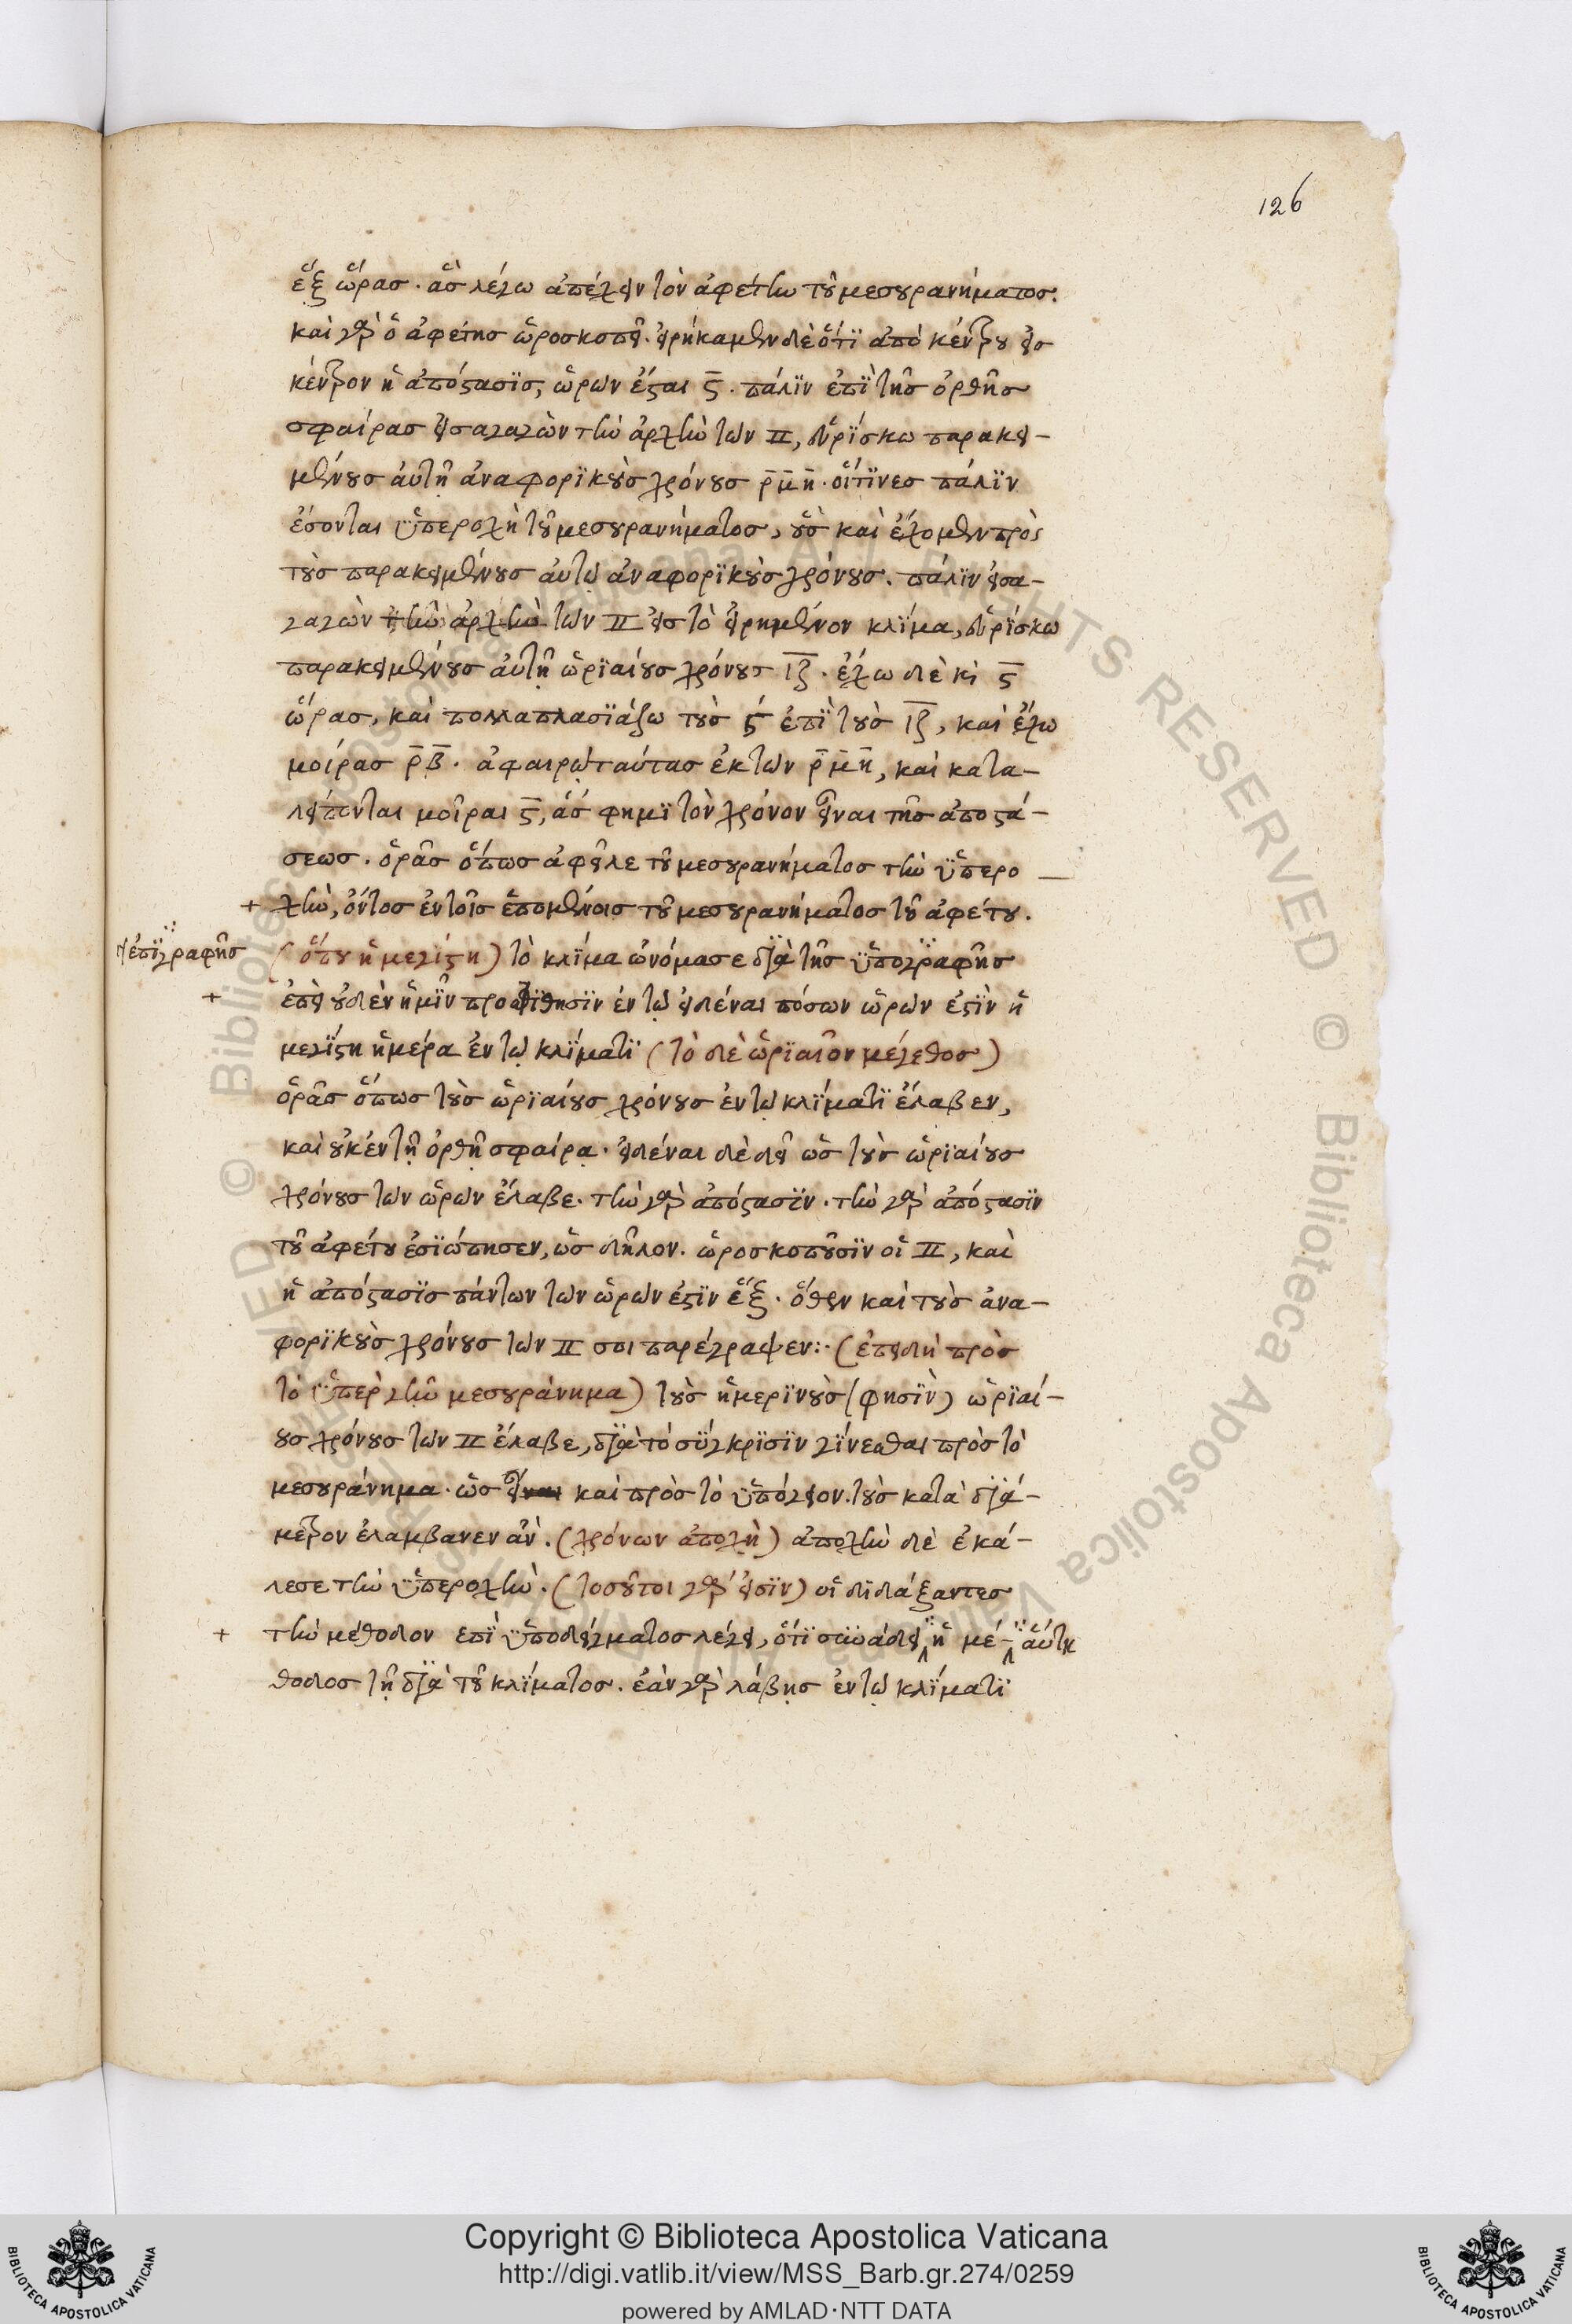 126
ἓξ ὥρας. ἃς λέγω ἀπέχειν τὸν ἀφέτην τοῦ μεσουρανήματος.
καὶ γὰρ ὁ ἀφέτης ὡροσκοπεῖ. εἰρήκαμεν δὲ ὅτι ἀπὸ κέντρου εἰς
κέντρον ἡ ἀπόστασις, ὡρῶν ἔσται ς̄. πάλιν ἐπὶ τῆς ὀρθῆς
σφαίρας εἰσαγαγὼν τὴν ἀρχὴν τῶν ♊, εὑρίσκω παρακει-
μένους αὐτῇ ἀναφορικοὺς χρόνους ρ̄μ̄η̄. οἵτινες πάλιν
ἔσονται ὑπεροχὴ τοῦ μεσουρανήματος, οὓς καὶ ἔχομεν πρὸς
τοὺς παρακειμένους αὐτῷ ἀναφορικοὺς χρόνους. πάλιν εἰσα-
γαγὼν τὴν ἀρχὴν τῶν ♊ εἰς τὸ εἰρημένον κλίμα, εὑρίσκω
παρακειμένους αὐτῇ ὡριαίους χρόνους ῑζ̄. ἔχω δὲ κ ς̄
ὥρας, καὶ πολλαπλασιάζω τοὺς ς ἐπὶ τοὺς ῑζ̄, καὶ ἔχω
μοίρας ρ̄β̄. ἀφαιρῶ ταύτας ἐκ τῶν ρ̄μ̄η̄, καὶ κατα-
λείπονται μοῖραι ς̄, ἃς φημὶ τὸν χρόνον εἶναι τῆς ἀποστά-
σεως. ὁρᾷς ὅπως ἀφεῖλε τοῦ μεσουρανήματος τὴν ὑπερο
+ χὴν, ὄντος ἐν τοῖς ἑπομένοις τοῦ μεσουρανήματος τοῦ ἀφέτου.
ἢ ἐπιγραφῆς (ὅπου ἡ μεγίστη) τὸ κλίμα ὠνόμασε διὰ τῆς ὑπογραφῆς
+ ἐπεὶ οὐδὲν ἡμῖν προστίθησιν ἐν τῷ εἰδέναι πόσων ὡρῶν ἐστὶν ἡ
μεγίστη ἡμέρα ἐν τῷ κλίματι (τὸ δὲ ὡριαῖον μέγεθος)
ὁρᾷς ὅπως τοὺς ὡριαίους χρόνους ἐν τῷ κλίματι ἔλαβεν,
καὶ οὐκ ἐν τῇ ὀρθῇ σφαίρᾳ. εἰδέναι δὲ δεῖ ὡς τοὺς ὡριαίους
χρόνους τῶν ὡρῶν ἔλαβε. τὴν γὰρ ἀπόστασιν. τὴν γὰρ ἀπόστασιν
τοῦ ἀφέτου ἐσιώπησεν, ὡς δῆλον. ὡροσκοποῦσιν οἱ ♊, καὶ
ἡ ἀπόστασις πάντων τῶν ὡρῶν ἐστὶν ἕξ. ὅθεν καὶ τοὺς ἀνα-
φορικοὺς χρόνους τῶν ♊ σοι παρέγραψεν:· (ἐπειδὴ πρὸς
τὸ ὑπὲρ γῆν μεσουράνημα) τοὺς ἡμερινοὺς (φησὶν) ὡριαί-
ους χρόνους τῶν ♊ ἔλαβε, διὰ τὸ σύγκρισιν γίνεσθαι πρὸς τὸ
μεσουράνημα. ὡς εἰ καὶ πρὸς τὸ ὑπόγειον. τοὺς κατὰ διά-
μετρον ἐλαμβανεν ἂν. (χρόνων ἀποχὴ) ἀποχὴν δὲ ἐκά-
λεσε τὴν ὑπεροχήν. (τοσοῦτοι γάρ εἰσιν) οἱ διδάξαντες
+ τὴν μέθοδον ἐπὶ ὑποδείγματος λέγει, ὅτι συνάδει ἡ μέ- αὕτη
θοδος τῇ διὰ τοῦ κλίματος. ἐὰν γὰρ λάβῃς ἐν τῷ κλίματι
Copyright © Biblioteca Apostolica Vaticana
http://digi.vatlib.it/view/MSS_Barb.gr.274/0259
powered by AMLAD·NTT DATA